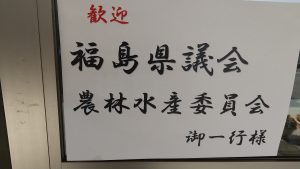 歓迎
福島県議会
農林水産委員会
御一行様